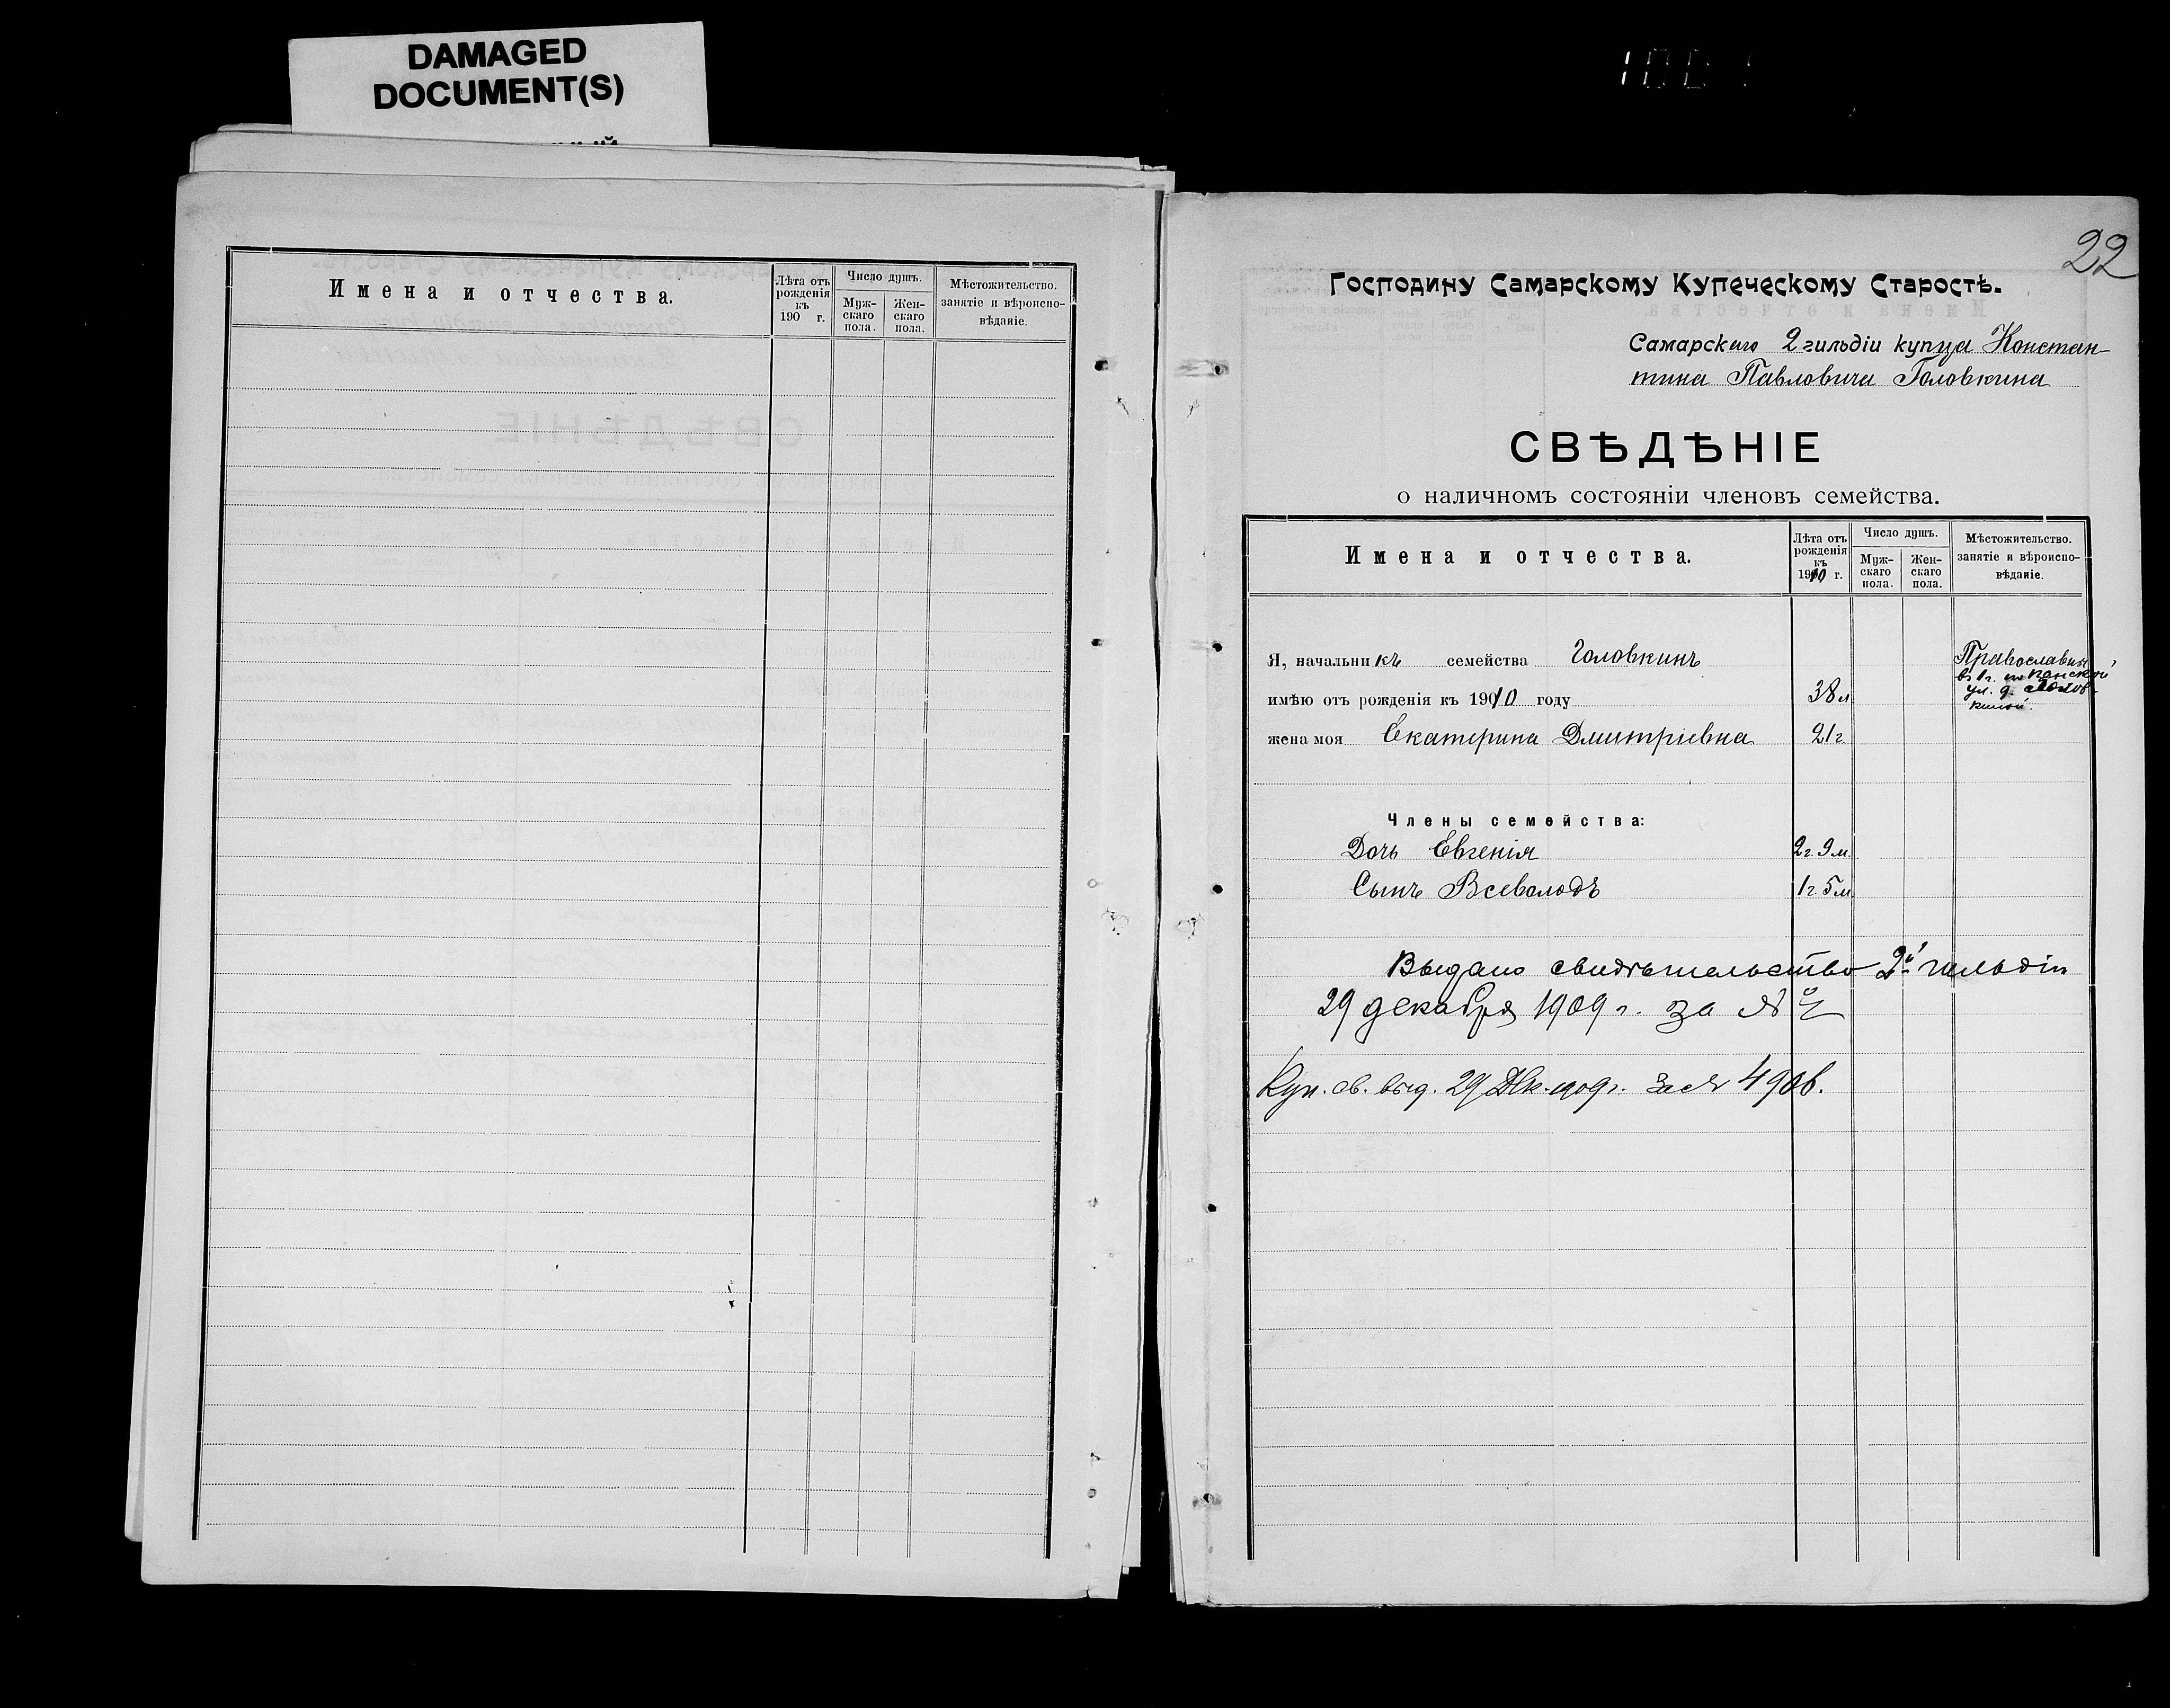 DAMAGED
DOCUMENT(S)
Имена и отчества.
Лѣта отъ рожденія къ 190 г.
Число душъ.
Муж-скаго пола.
Жен-скаго пола.
Мѣстожительство. занятіе и вѣроиспо-вѣданіе.
22
Господину Самарскому Купеческому Старостѣ.
Самарскаго 2 гильдіи купца Констан-
тина Павловича Головкина
СВѢДѢНІЕ
о наличномъ состояніи членовъ семейства.
Имена и отчества.
Лѣта отъ рожденія къ 1910 г.
Число душъ.
Муж-скаго пола.
Жен-скаго пола.
Мѣстожительство. занятіе и вѣроиспо-вѣданіе.
Я, начальникъ семейства Головкинъ
имѣю отъ рожденія къ 1910 году 38 л
жена моя Екатерина Дмитріевна 21 г
Члены семейства:
Дочь Евгенія 2 г. 9 м.
Сынъ Всеволодъ 1 г. 5 м
Выдано свидѣтельство 2й гильдіи
29 декабря 1909 г. за №
Куп. св. выд. 29 Дек. 1909 г. за №